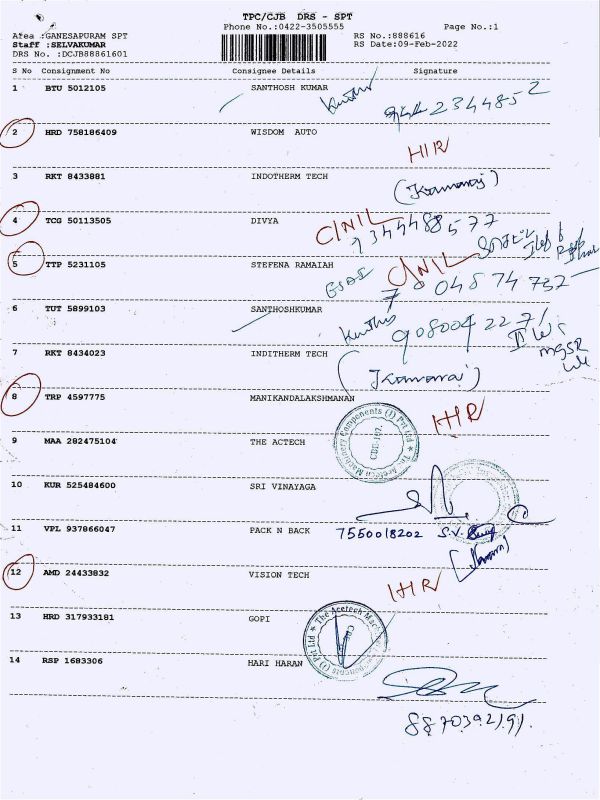 TPC/CJB DRS - SPT
Phone No.:0422-3505555 Page No.:1
Area :GANESAPURAM SPT RS No.:888616
Staff :SELVAKUMAR RS Date:09-Feb-2022
DRS No. :DCJB88861601
S No Consignment No Consignee Details Signature
1 BTU 5012105 SANTHOSH KUMAR
2344852
2 HRD 758186409 WISDOM AUTO
HIR
3 RKT 8433881 INDOTHERM TECH
(Kamaraj)
4 TCG 50113505 DIVYA C/NIL
7344488577
5 TTP 5231105 STEFENA RAMAIAH C/NIL
6 TUT 5899103 SANTHOSHKUMAR
7 RKT 8434023 INDITHERM TECH
(Kamaraj)
8 TRP 4597775 MANIKANDALAKSHMANAN
HIR
9 MAA 282475104 THE ACTECH
The Acetech Machinery Components (I) Pvt Ltd
10 KUR 525484600 SRI VINAYAGA
11 VPL 937866047 PACK N BACK 7550018202
12 AMD 24433832 VISION TECH
HIR
13 HRD 317933181 GOPI
14 RSP 1683306 HARI HARAN
The Acetech Machinery Components (I) Pvt Ltd